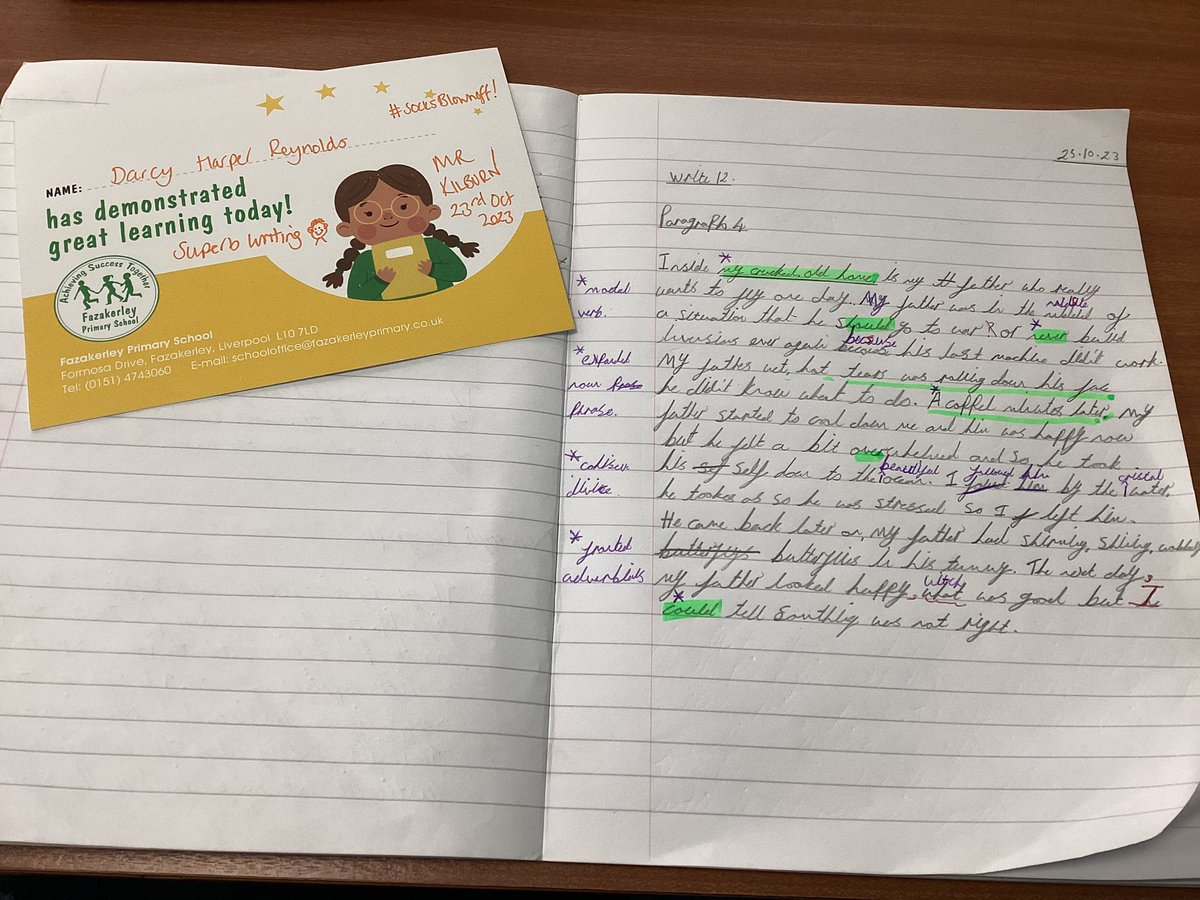 #SocksBlownoff!
NAME: Darcy Harper Reynolds
has demonstrated
great learning today!
Superb Writing
MR
KILBURN
23rd Oct
2023
Achieving Success Together
Fazakerley
Primary School
Fazakerley Primary School
Formosa Drive, Fazakerley, Liverpool L10 7LD
Tel: (0151) 4743060 E-mail: schooloffice@fazakerleyprimary.co.uk
23.10.23
Write 12.
Paragraph 4
Inside my crucked old home is my father who really
wants to fly one day. My father was in the middle of
a situation that he should go to war R or never build
inversions ever again because because his last machine didn't work.
My father wet, hot tears was rolling down his face
he didn't know what to do. A coffel minutes later, my
father started to cool down me and him was happy now
but he felt a bit overwhelmed and So he took
his self down to the beautiful ocean. I followed him by the cristal water.
he tookes as so he was stressed So I left him.
He came back later on, my father had shinning, shining,
butterflys butterflies in his tummy. The next day,
my father looked happy, witch what was good but I
could tell Somthig was not right.
*modal
verb.
*expanded
noun
Phrase.
*fronted
adverbials